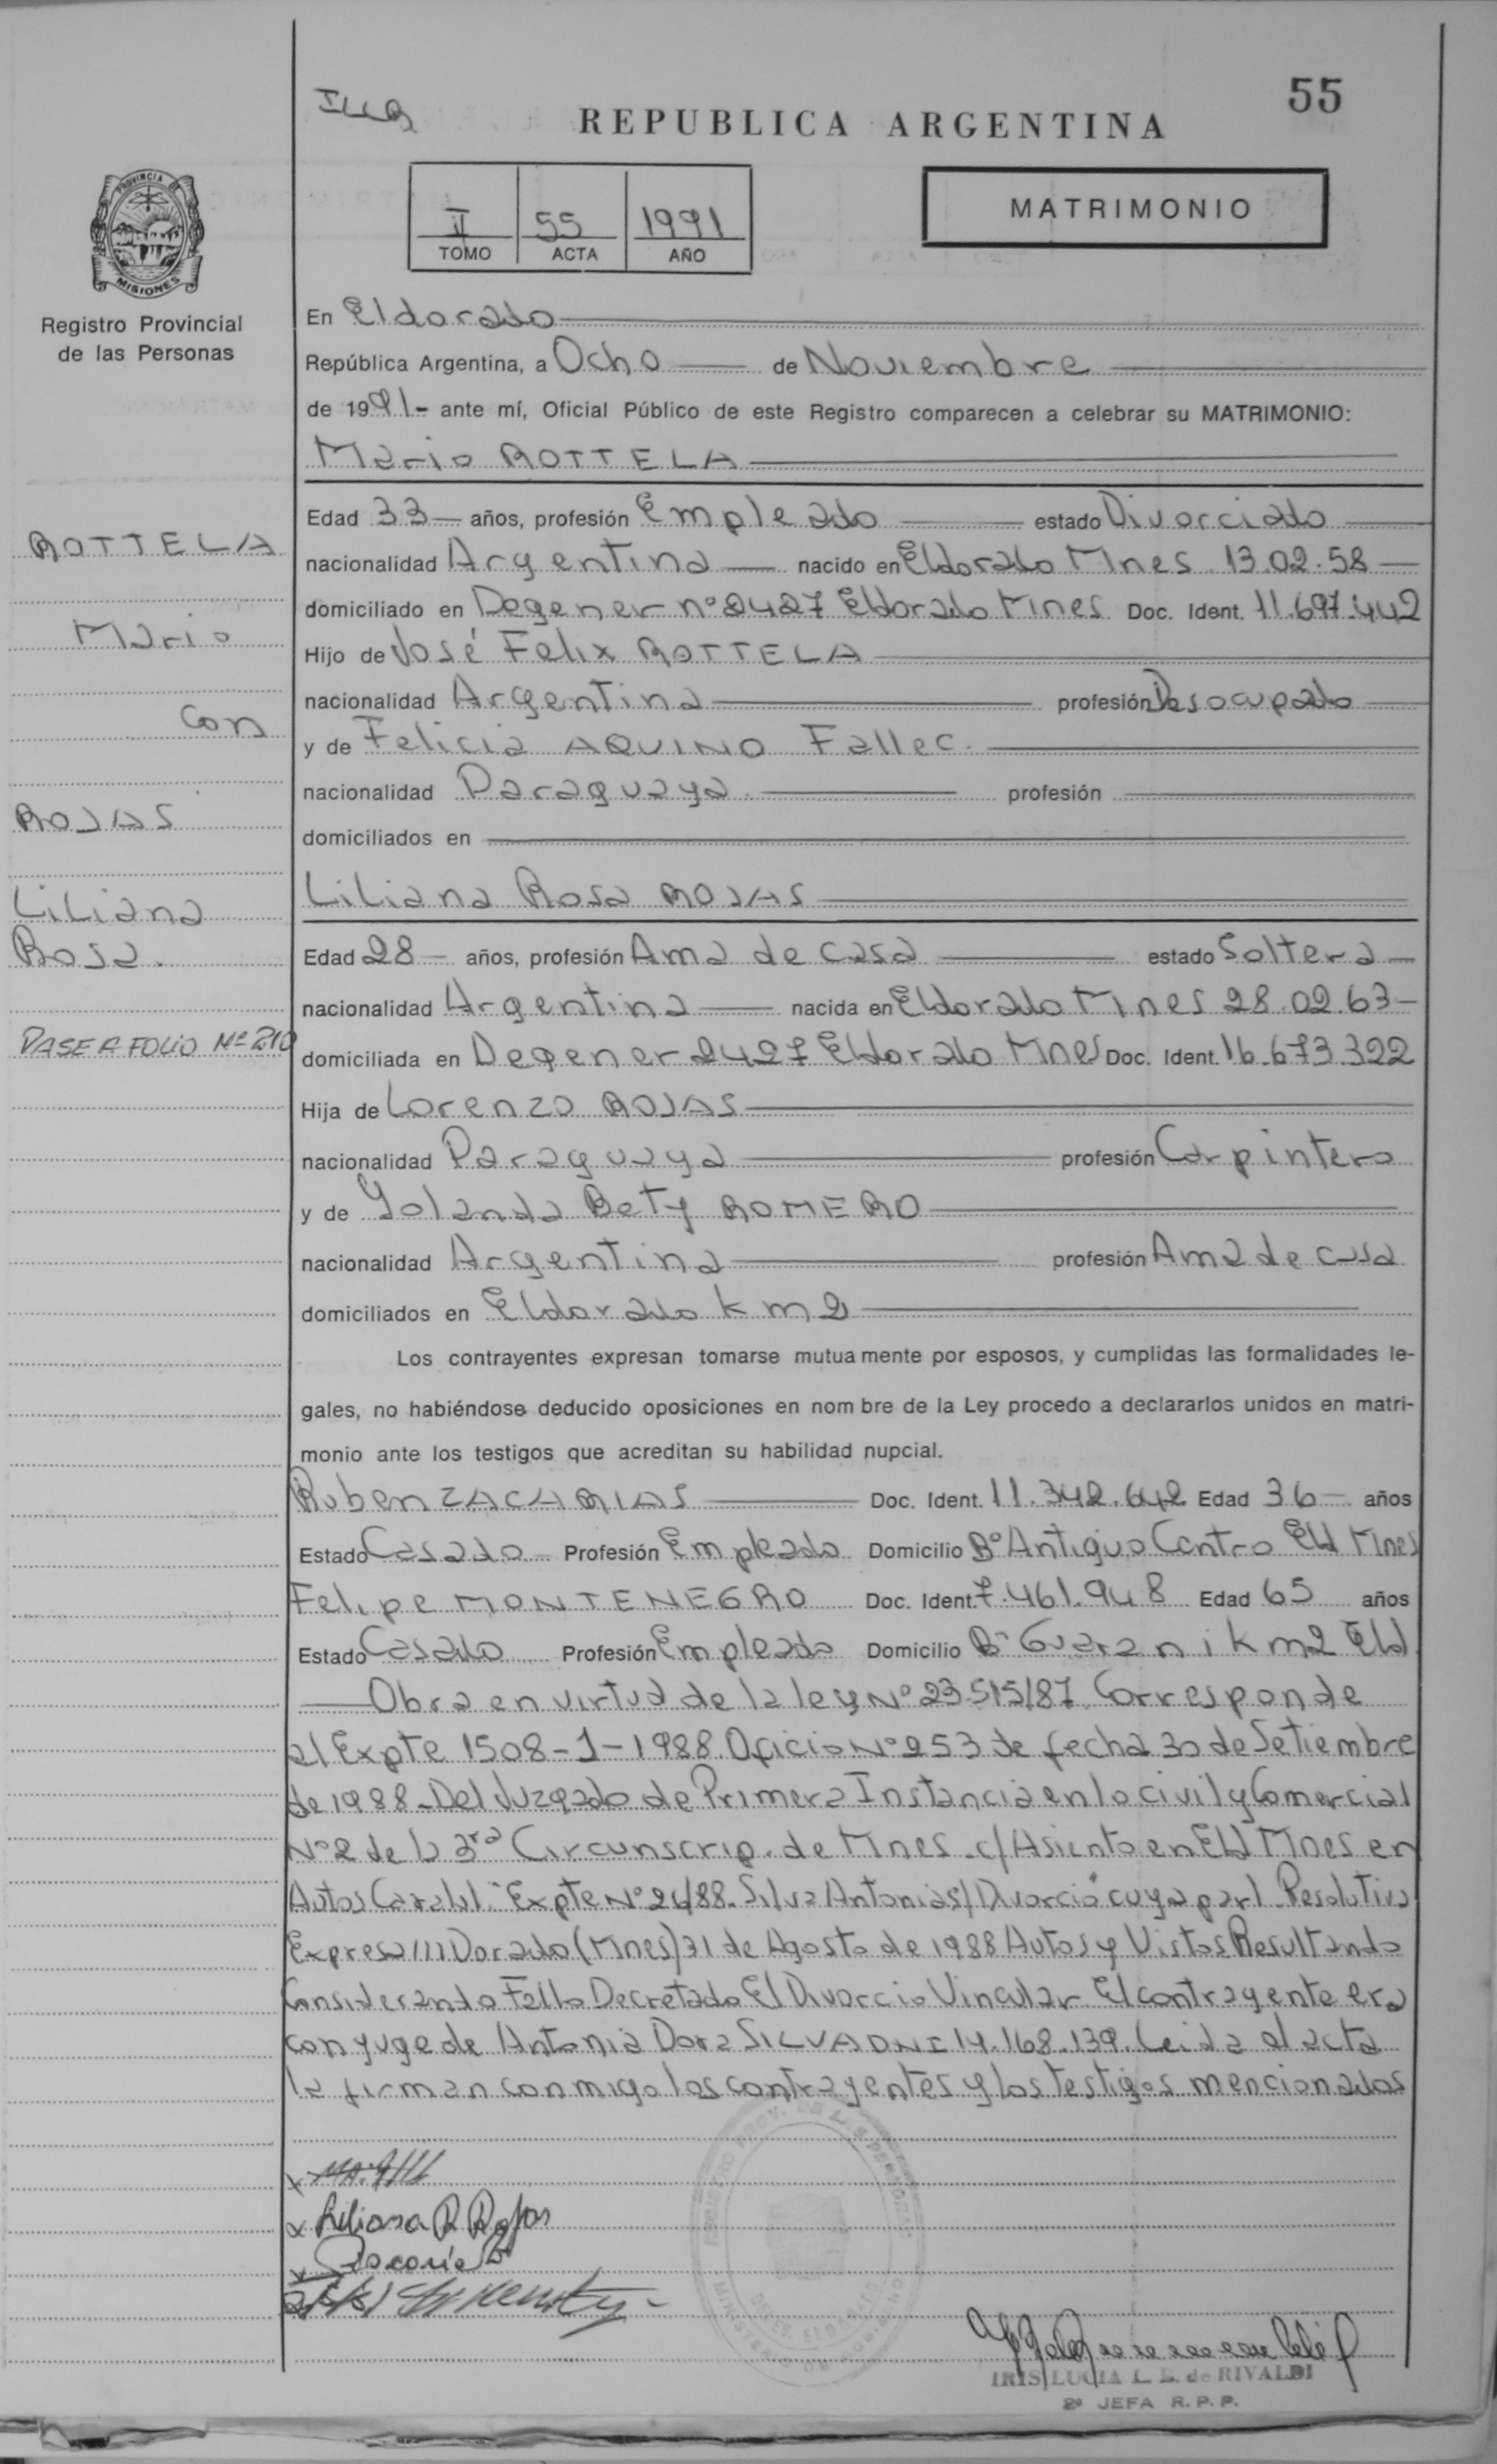 55
REPUBLICA ARGENTINA
PROVINCIA DE
MISIONES
Registro Provincial
de las Personas
II 55 1991
TOMO ACTA AÑO
MATRIMONIO
En Eldorado
República Argentina, a Ocho de Noviembre
de 1991- ante mí, Oficial Público de este Registro comparecen a celebrar su MATRIMONIO:
Mario ROTTELA
ROTTELA
Mario
con
ROJAS
Liliana
Rosa.
PASE A FOLIO Nº 210
Edad 33 años, profesión Empleado estado Divorciado
nacionalidad Argentina nacido en Eldorado Mnes. 13.02.58
domiciliado en Degener nº 2427 Eldorado Mnes. Doc. Ident. 11.697.442
Hijo de José Felix ROTTELA
nacionalidad Argentina profesión Desocupado
y de Felicia AQUINO Fallec.
nacionalidad Paraguaya profesión
domiciliados en
Liliana Rosa ROJAS
Edad 28 años, profesión Ama de casa estado Soltera
nacionalidad Argentina nacida en Eldorado Mnes 28.02.63
domiciliada en Degener 2427 Eldorado Mnes Doc. Ident. 16.673.322
Hija de Lorenzo ROJAS
nacionalidad Paraguaya profesión Carpintero
y de Yolanda Bety ROMERO
nacionalidad Argentina profesión Ama de casa
domiciliados en Eldorado Km 2
Los contrayentes expresan tomarse mutuamente por esposos, y cumplidas las formalidades le-
gales, no habiéndose deducido oposiciones en nombre de la Ley procedo a declararlos unidos en matri-
monio ante los testigos que acreditan su habilidad nupcial.
Ruben ZACARIAS Doc. Ident. 11.342.642 Edad 36 años
Estado Casado Profesión Empleado Domicilio Bº Antiguo Centro Eld Mnes
Felipe MONTENEGRO Doc. Ident. 7.461.948 Edad 65 años
Estado Casado Profesión Empleado Domicilio Bº Guarani Km2 Eld
Obra en virtud de la ley Nº 23.515/87. Corresponde
al Expte 1508-J-1988. Oficio Nº 253 de fecha 30 de Setiembre
de 1988. Del Juzgado de Primera Instancia en lo civil y Comercial
Nº 2 de la 3ra Circunscrip. de Mnes. c/Asiento en Eld Mnes en
Autos Caratul. "Expte Nº 26/88. Silva Antonia s/Divorcio" cuya part. Resolutiva
Expresa ///Dorado (Mnes) 31 de Agosto de 1988 Autos y Vistos Resultando
Considerando Fallo Decretado El Divorcio Vincular. El contrayente era
conyuge de Antonia Dora SILVA DNI 14.168.139. Leida el acta
la firman conmigo los contrayentes y los testigos mencionados
Liliana R Rojas
IRIS LUCIA L. B. de RIVALDI
2ª JEFA R.P.P.